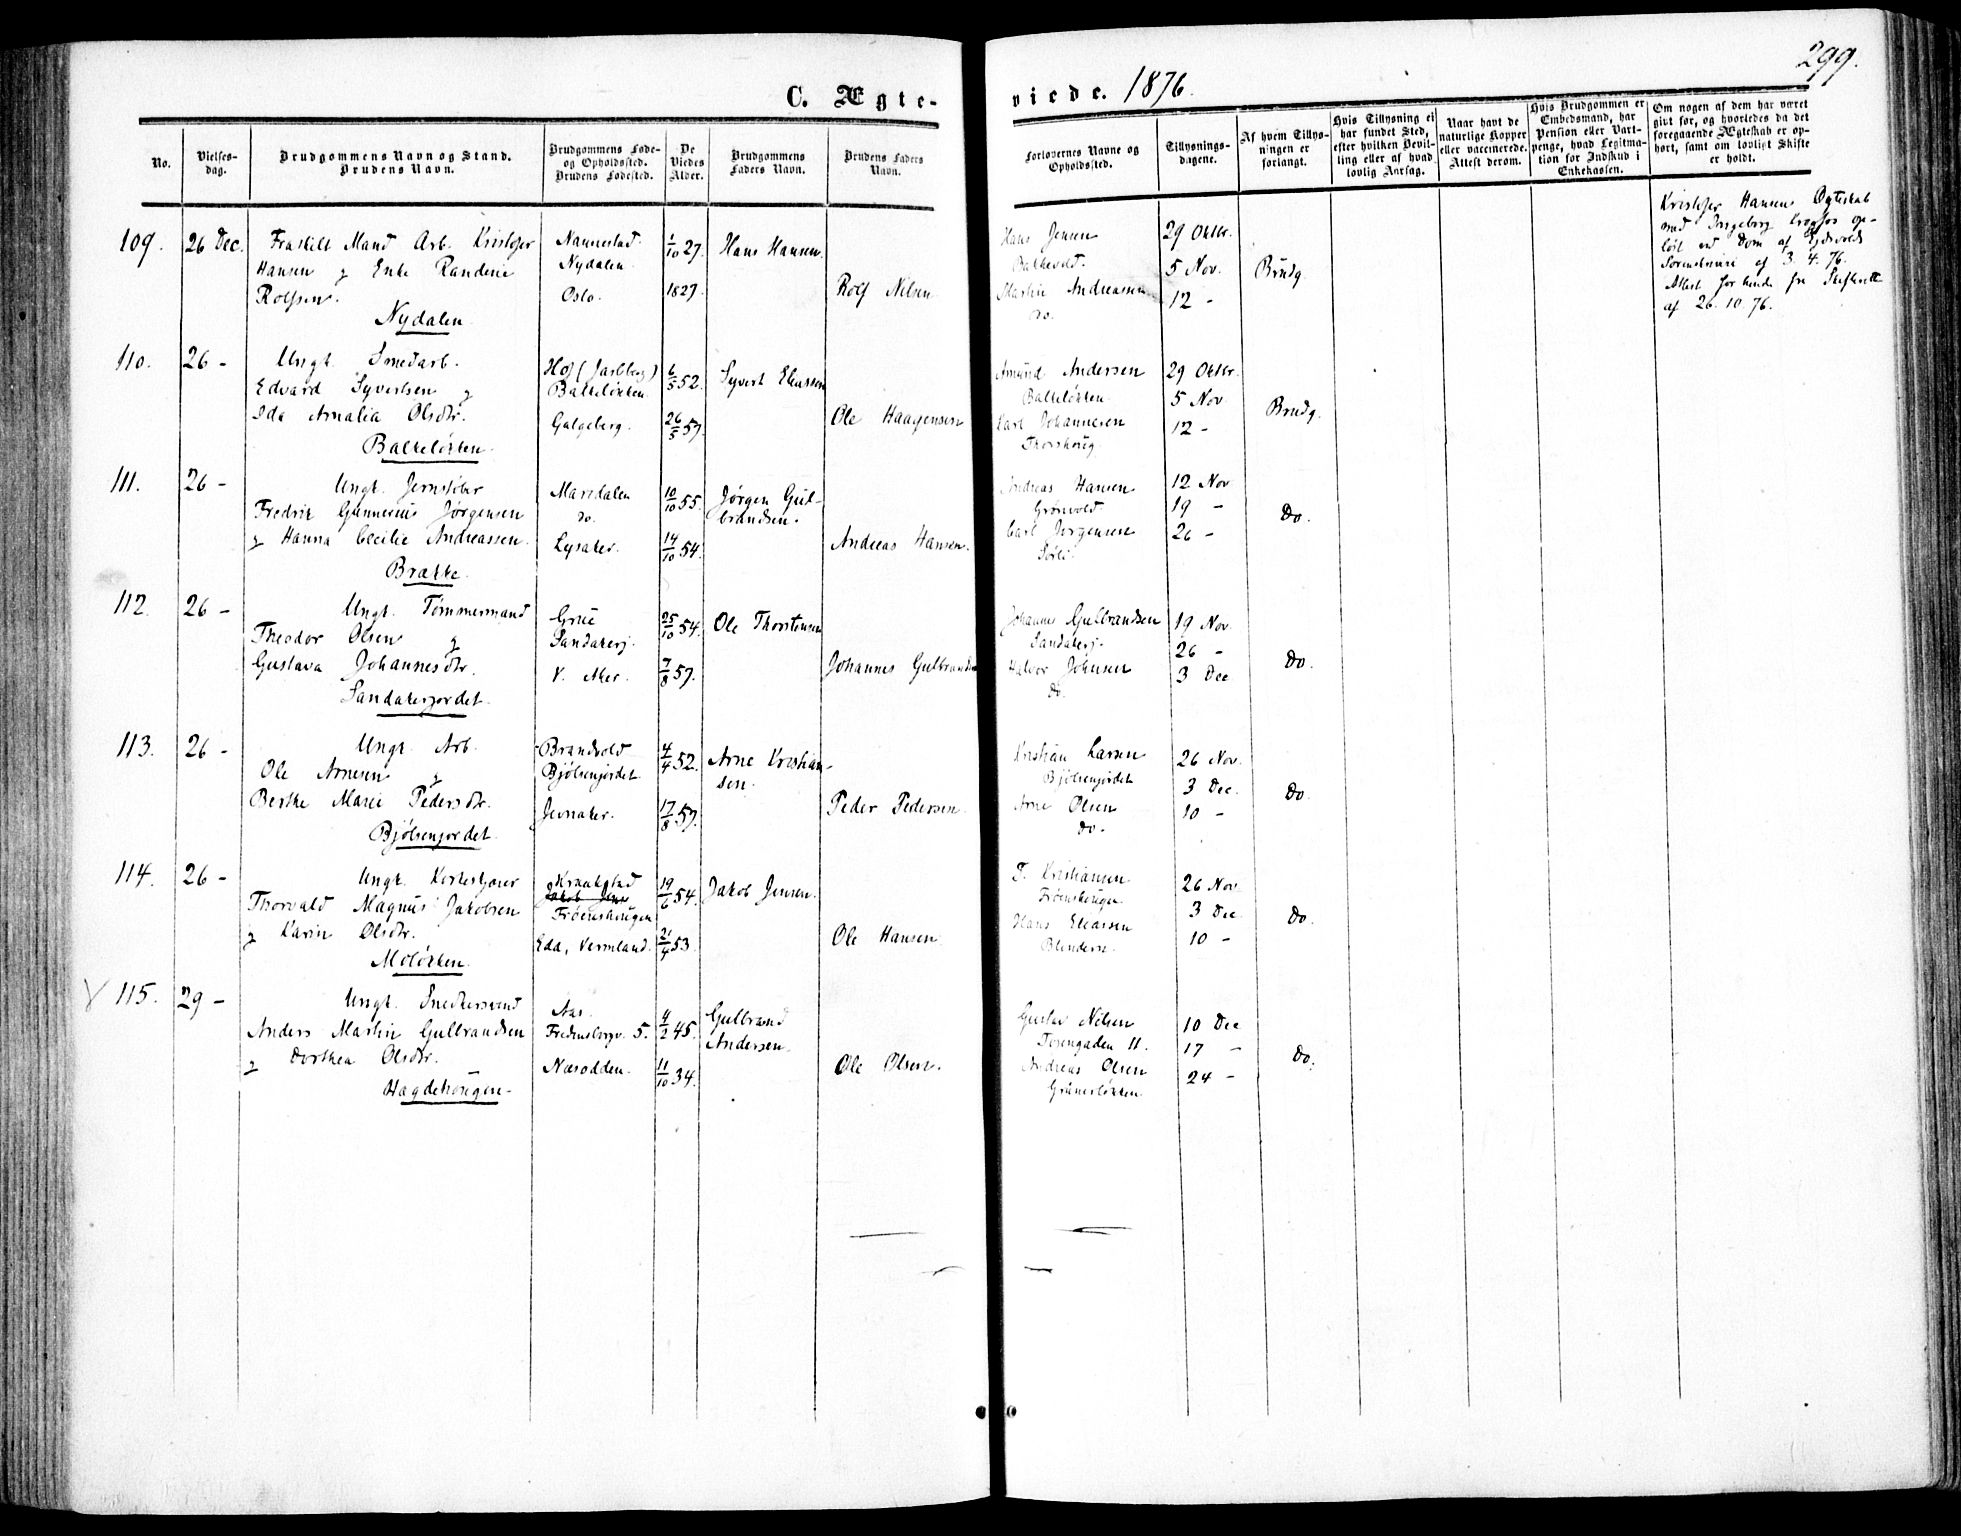 299.
C. Ægte-
viede. 1876.
No.
Vielses-
dag.
Brudgommens Navn og Stand.
Brudens Navn.
Brudgommens Føde-
og Opholdssted.
Brudens Fødested.
De
Viedes
Alder.
Brudgommens
Faders Navn.
Brudens Faders
Navn.
Forlovernes Navne og
Opholdssted.
Tillysnings-
dagene.
Af hvem Tillys-
ningen er
forlangt.
Hvis Tillysning ei
har fundet Sted,
efter hvilken Bevil-
ling eller af hvad
lovlig Aarsag.
Naar havt de
naturlige Kopper
eller vaccinerede.
Attest derom.
Hvis Brudgommen er
Embedsmand, har
Pension eller Vart-
penge, hvad Legitma-
tion for Indskud i
Enkekassen.
Om nogen af dem har været
gift før, og hvorledes da det
foregaaende Ægteskab er op-
hørt, samt om lovligt Skifte
er holdt.
109. 26 Dec. Fraskilt Mand Arb. Kristofer
Hansen og Enke Randine
Rolfsen.
Nydalen
Nannestad.
Nydalen.
Oslo.
1/10 27.
1827.
Hans Hansen.
Rolf Nilsen
Hans Jensen
Balkevold.
Martin Andreassen
do.
29 Oktbr.
5 Nov.
12 -
Brudg.
Kristofer Hansens Ægteskab
med Ingeborg op-
løst ved Dom af Eidsvolds
Sorenskriveri af 3.4.76.
Attest for hende fra Skifterett
af 26.10.76.
110. 26 - Ungk. Smedarb.
Edvard Syvertsen og
Ida Amalia Olsdtr.
Balkeløkken
Hof (Jarlsberg)
Balkeløkken
Galgeberg.
6/5 52.
26/5 57.
Syvert Eliassen
Ole Haagensen
Amund Andersen
Balkeløkken
Karl Johannesen
Thorshoug
29 Oktbr.
5 Nov
12 -
Brudg.
111. 26 - Ungk. Jernstøber
Fredrik Gunnerius Jørgensen
og Hanna Cecilie Andreassen.
Brække.
Maridalen
do.
Lysaker.
10/10 55.
14/10 54.
Jørgen Gul-
brandsen.
Andreas Hansen.
Andreas Hansen
Grønvold
Carl Jørgensen
Sørli.
12 Nov
19 -
26 -
Do.
112. 26 - Ungk. Tømmermand
Theodor Olsen og
Gustava Johannesdtr.
Sandakerjordet
Grue
Sandakerj.
V. Aker.
25/10 54.
7/8 57.
Ole Thorstensen
Johannes Gulbrandsen
Johannes Gulbrandsen
Sandakerj.
Halvor Johnsen
do.
19 Nov.
26 -
3 Dec
Do.
113. 26 - Ungk. Arb.
Ole Arnesen og
Berthe Marie Pedersdtr.
Bjølsenjordet
Brandvold
Bjølsenjordet
Jevnaker.
4/4 52.
17/8 57.
Arne Kristian-
sen.
Peder Pedersen
Kristian Larsen
Bjølsenjordet
Arne Olsen
do.
26 Nov.
3 Dec.
10 -
Do.
114. 26 - Ungk.
Thorvald Magnus Jakobsen
og Karin Olsdtr.
Moløkken
Kraakstad
Jakob Jens
Frøenshougen
Eda, Vermland.
19/6 54.
21/4 53.
Jakob Jensen.
Ole Hansen
T. Kristiansen
Frøenshougen
Hans Eliassen
Blindern.
26 Nov
3 Dec
10 -
Do.
115. 29 - Ungk. Snedkersvend
Anders Martin Gulbrandsen
og Dorthea Olsdtr.
Hagdehougen
Aas.
Fredensborgv. 5.
Næsodden.
4/2 45.
11/10 34.
Gulbrand
Andersen.
Ole Olsen.
Gustav Nilsen
Torvgaden 11.
Andreas Olsen
Grünerløkken
10 Dec
17 -
24 -
Do.